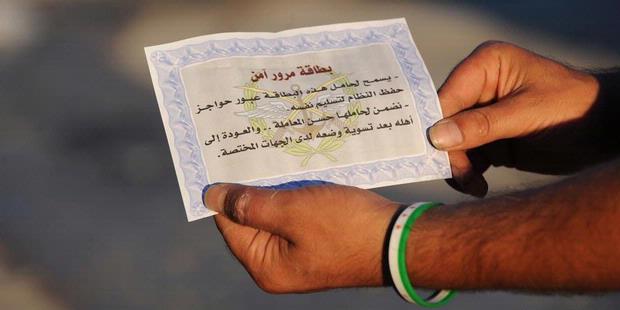 بطاقة مرور آمن
- يسمح لحامل هذه البطاقة عبور حواجز
حفظ النظام لتسليم نفسه.
- نضمن لحاملها حسن المعاملة .. والعودة إلى
أهله بعد تسوية وضعه لدى الجهات المختصة.